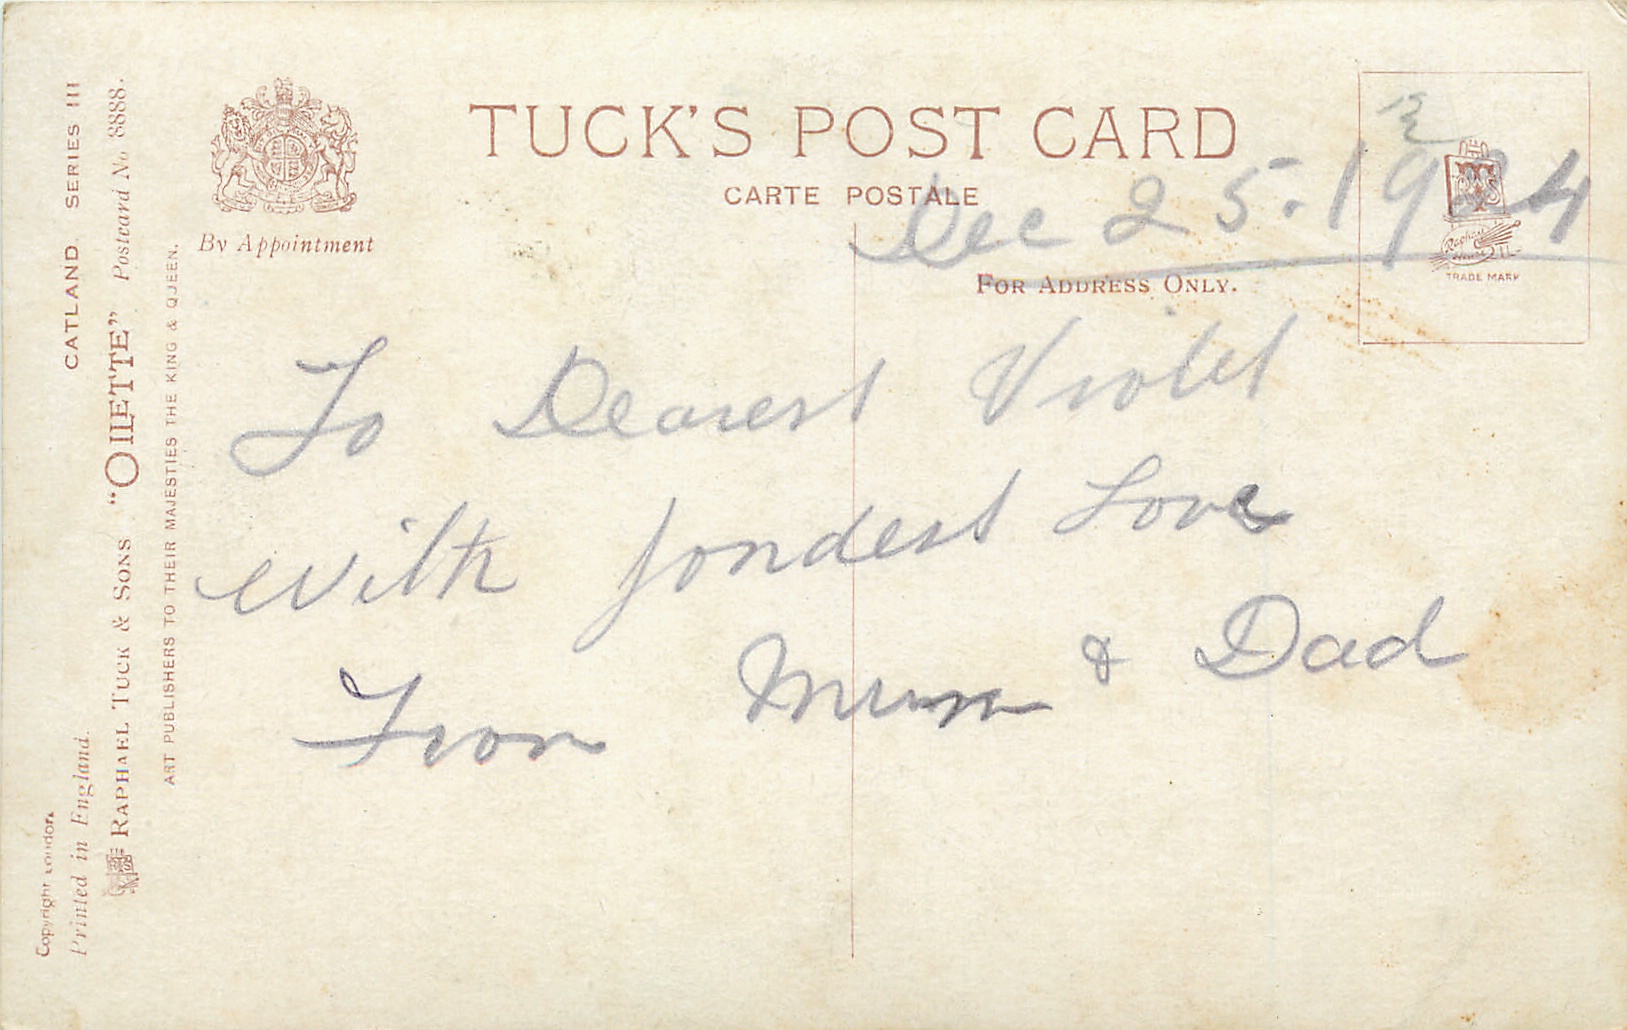 TUCK'S POST CARD
CARTE POSTALE
FOR ADDRESS ONLY.
By Appointment
CATLAND SERIES III
"OILETTE" Postcard No 8888.
RAPHAEL TUCK & SONS
ART PUBLISHERS TO THEIR MAJESTIES THE KING & QUEEN.
Printed in England.
Copyright London
Raphael House
TRADE MARK
Dec 25. 1924
To Dearest Violet
with fondest Love
From Mum & Dad